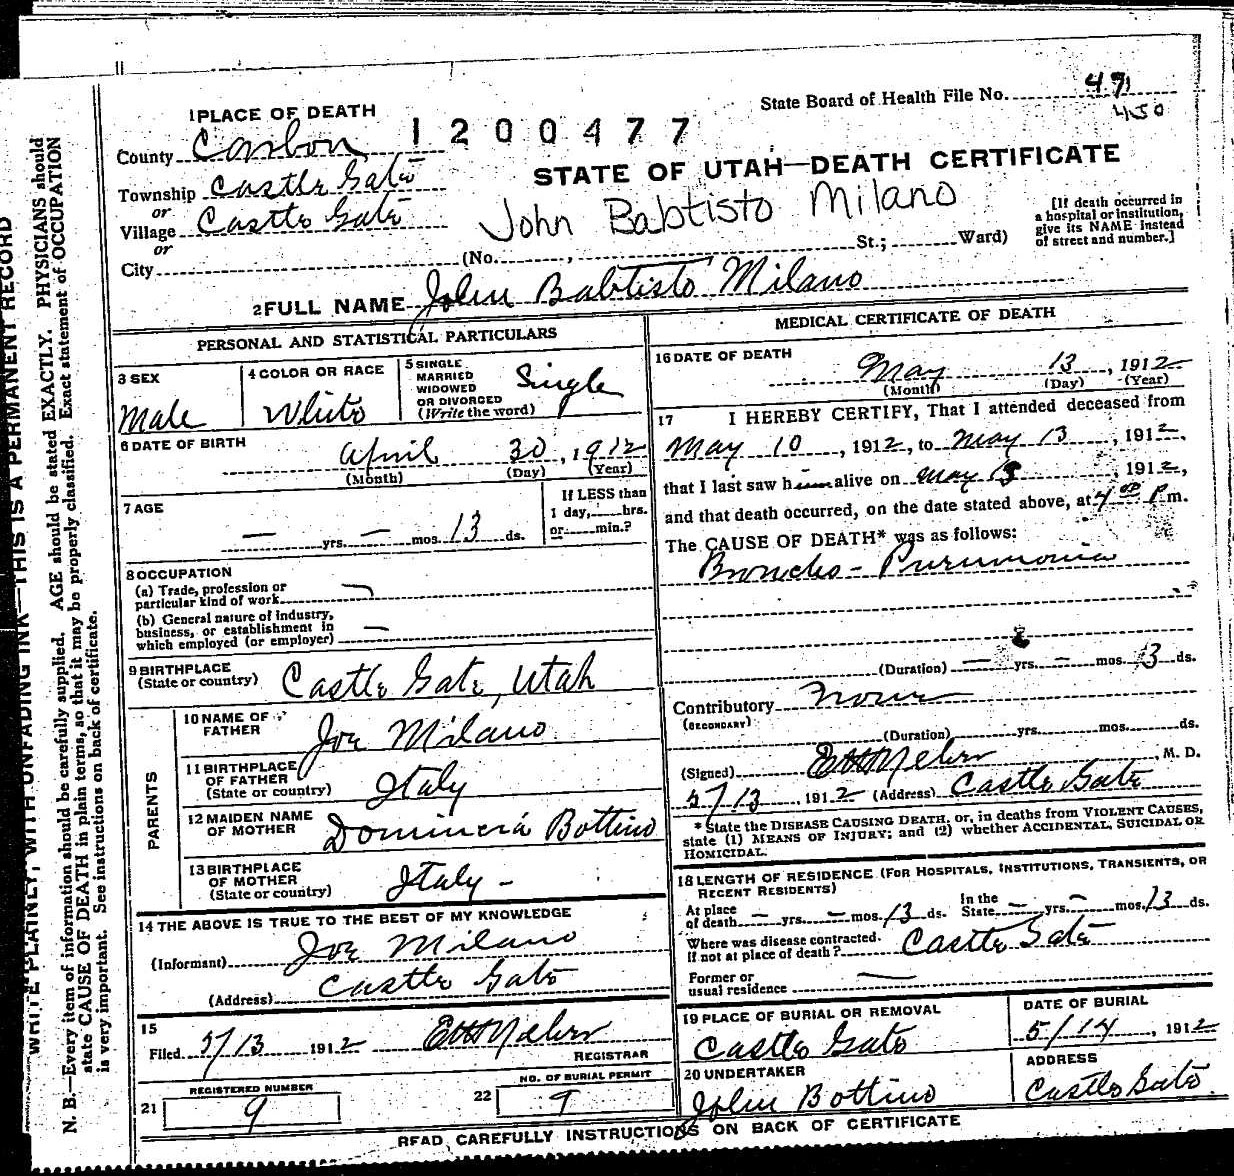 State Board of Health File No. 471
450
1 PLACE OF DEATH
1200477
County Carbon
STATE OF UTAH—DEATH CERTIFICATE
Township Castle Gate
or
Village Castle Gate
John Babtisto Milano
[If death occurred in a hospital or institution, give its NAME instead of street and number.]
or
City (No. , St.; Ward)
2 FULL NAME John Babtisto Milano
PERSONAL AND STATISTICAL PARTICULARS
3 SEX
Male
4 COLOR OR RACE
White
5 SINGLE MARRIED WIDOWED OR DIVORCED (Write the word)
Single
6 DATE OF BIRTH
April 30, 1912
(Month) (Day) (Year)
7 AGE
— yrs. — mos. 13 ds.
If LESS than 1 day, hrs. or min.?
8 OCCUPATION
(a) Trade, profession or particular kind of work
(b) General nature of industry, business, or establishment in which employed (or employer) —
9 BIRTHPLACE
(State or country) Castle Gate, Utah
PARENTS
10 NAME OF FATHER Joe Milano
11 BIRTHPLACE OF FATHER (State or country) Italy
12 MAIDEN NAME OF MOTHER Bottino
13 BIRTHPLACE OF MOTHER (State or country) Italy -
14 THE ABOVE IS TRUE TO THE BEST OF MY KNOWLEDGE
(Informant) Joe Milano
(Address) Castle Gate
15
Filed 5/13 1912
REGISTRAR
REGISTERED NUMBER
21 9
NO. OF BURIAL PERMIT
22 9
MEDICAL CERTIFICATE OF DEATH
16 DATE OF DEATH
May 13, 1912
(Month) (Day) (Year)
17 I HEREBY CERTIFY, That I attended deceased from
May 10, 1912, to May 13, 1912,
that I last saw him alive on May 13, 1912,
and that death occurred, on the date stated above, at 4 00 P m.
The CAUSE OF DEATH* was as follows:
Broncho-Pneumonia
(Duration) — yrs. — mos. 3 ds.
Contributory None
(SECONDARY)
(Duration) yrs. mos. ds.
(Signed) M. D.
5/13, 1912 (Address) Castle Gate
* State the DISEASE CAUSING DEATH, or, in deaths from VIOLENT CAUSES,
state (1) MEANS OF INJURY; and (2) whether ACCIDENTAL, SUICIDAL OR
HOMICIDAL.
18 LENGTH OF RESIDENCE (FOR HOSPITALS, INSTITUTIONS, TRANSIENTS, OR
RECENT RESIDENTS)
At place of death — yrs. — mos. 13 ds. In the State — yrs. — mos. 13 ds.
Where was disease contracted. If not at place of death? Castle Gate
Former or usual residence —
19 PLACE OF BURIAL OR REMOVAL
Castle Gate
DATE OF BURIAL
5/14, 1912
20 UNDERTAKER
John Bottino
ADDRESS
Castle Gate
READ CAREFULLY INSTRUCTIONS ON BACK OF CERTIFICATE
WRITE PLAINLY, WITH UNFADING INK—THIS IS A PERMANENT RECORD
N. B.—Every item of information should be carefully supplied. AGE should be stated EXACTLY. PHYSICIANS should
state CAUSE OF DEATH in plain terms, so that it may be properly classified. Exact statement of OCCUPATION
is very important. See instructions on back of certificate.